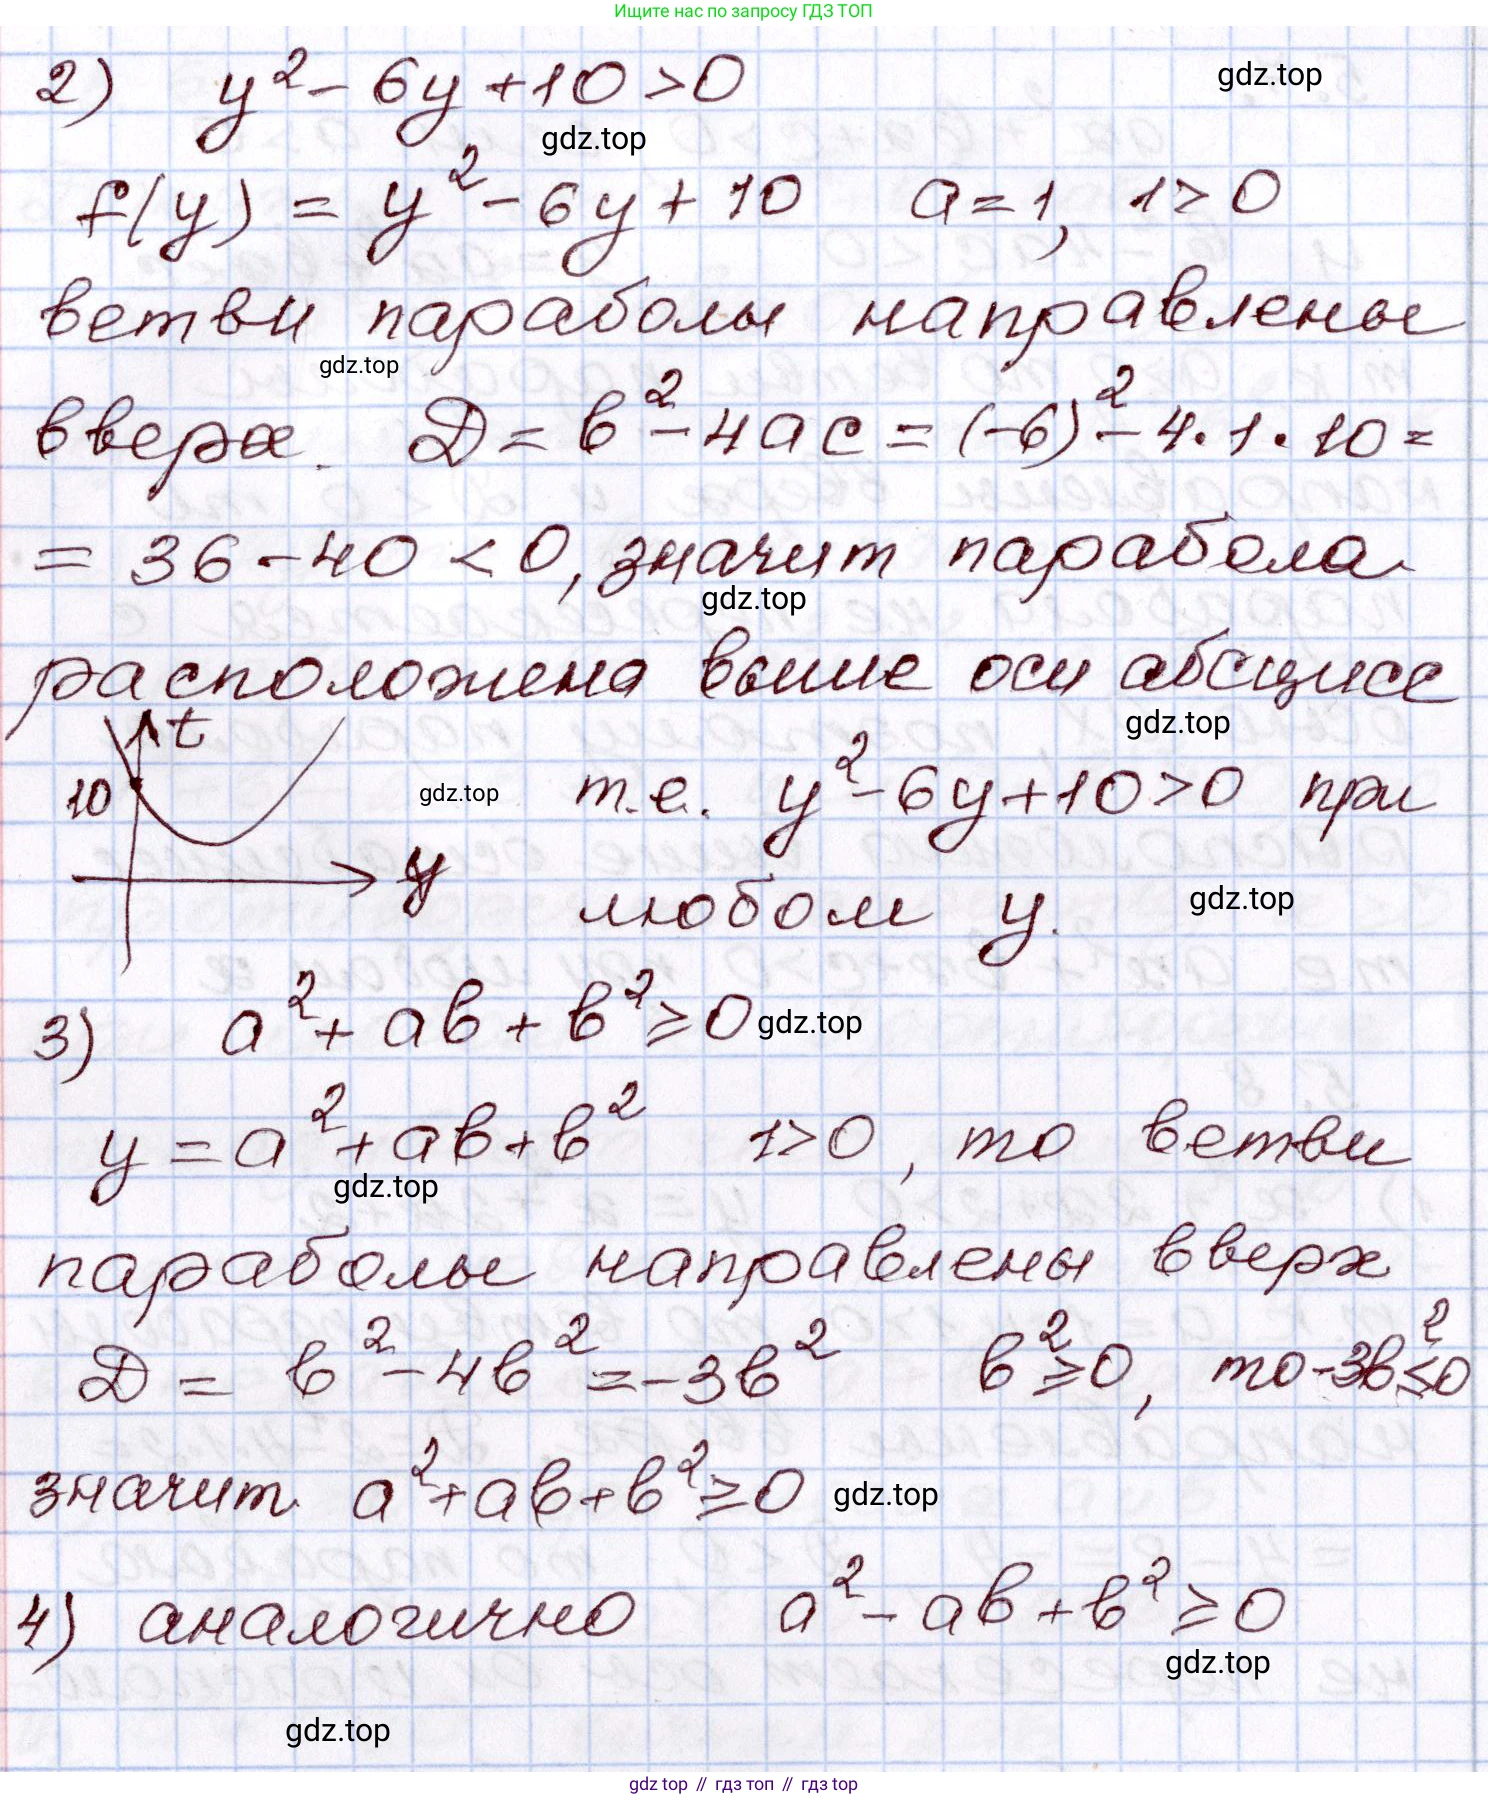 Ищите нас по запросу ГДЗ ТОП
2) y² - 6y + 10 > 0
gdz.top
gdz.top
f(y) = y² - 6y + 10 a = 1, 1 > 0
ветви параболы направлены
gdz.top
вверх. D = b² - 4ac = (-6)² - 4·1·10 =
= 36 - 40 < 0, значит парабола
gdz.top
расположена выше оси абсцисс
gdz.top
t
10
gdz.top
т.е. y² - 6y + 10 > 0 при
y
любом y.
gdz.top
3) a² + ab + b² ≥ 0
gdz.top
y = a² + ab + b² 1 > 0, то ветви
gdz.top
параболы направлены вверх
D = b² - 4b² = -3b² b² ≥ 0, то -3b² ≤ 0
значит a² + ab + b² ≥ 0
gdz.top
4) аналогично a² - ab + b² ≥ 0
gdz.top
gdz.top
gdz top // гдз топ // gdz top